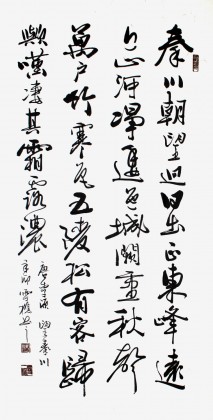 秦川朝望迥日出正東峰遠
近山河淨逶迤城闕重秋聲
萬戶竹寒色五陵松有客歸
歟嘆淒其霜露濃
唐李頎望秦川